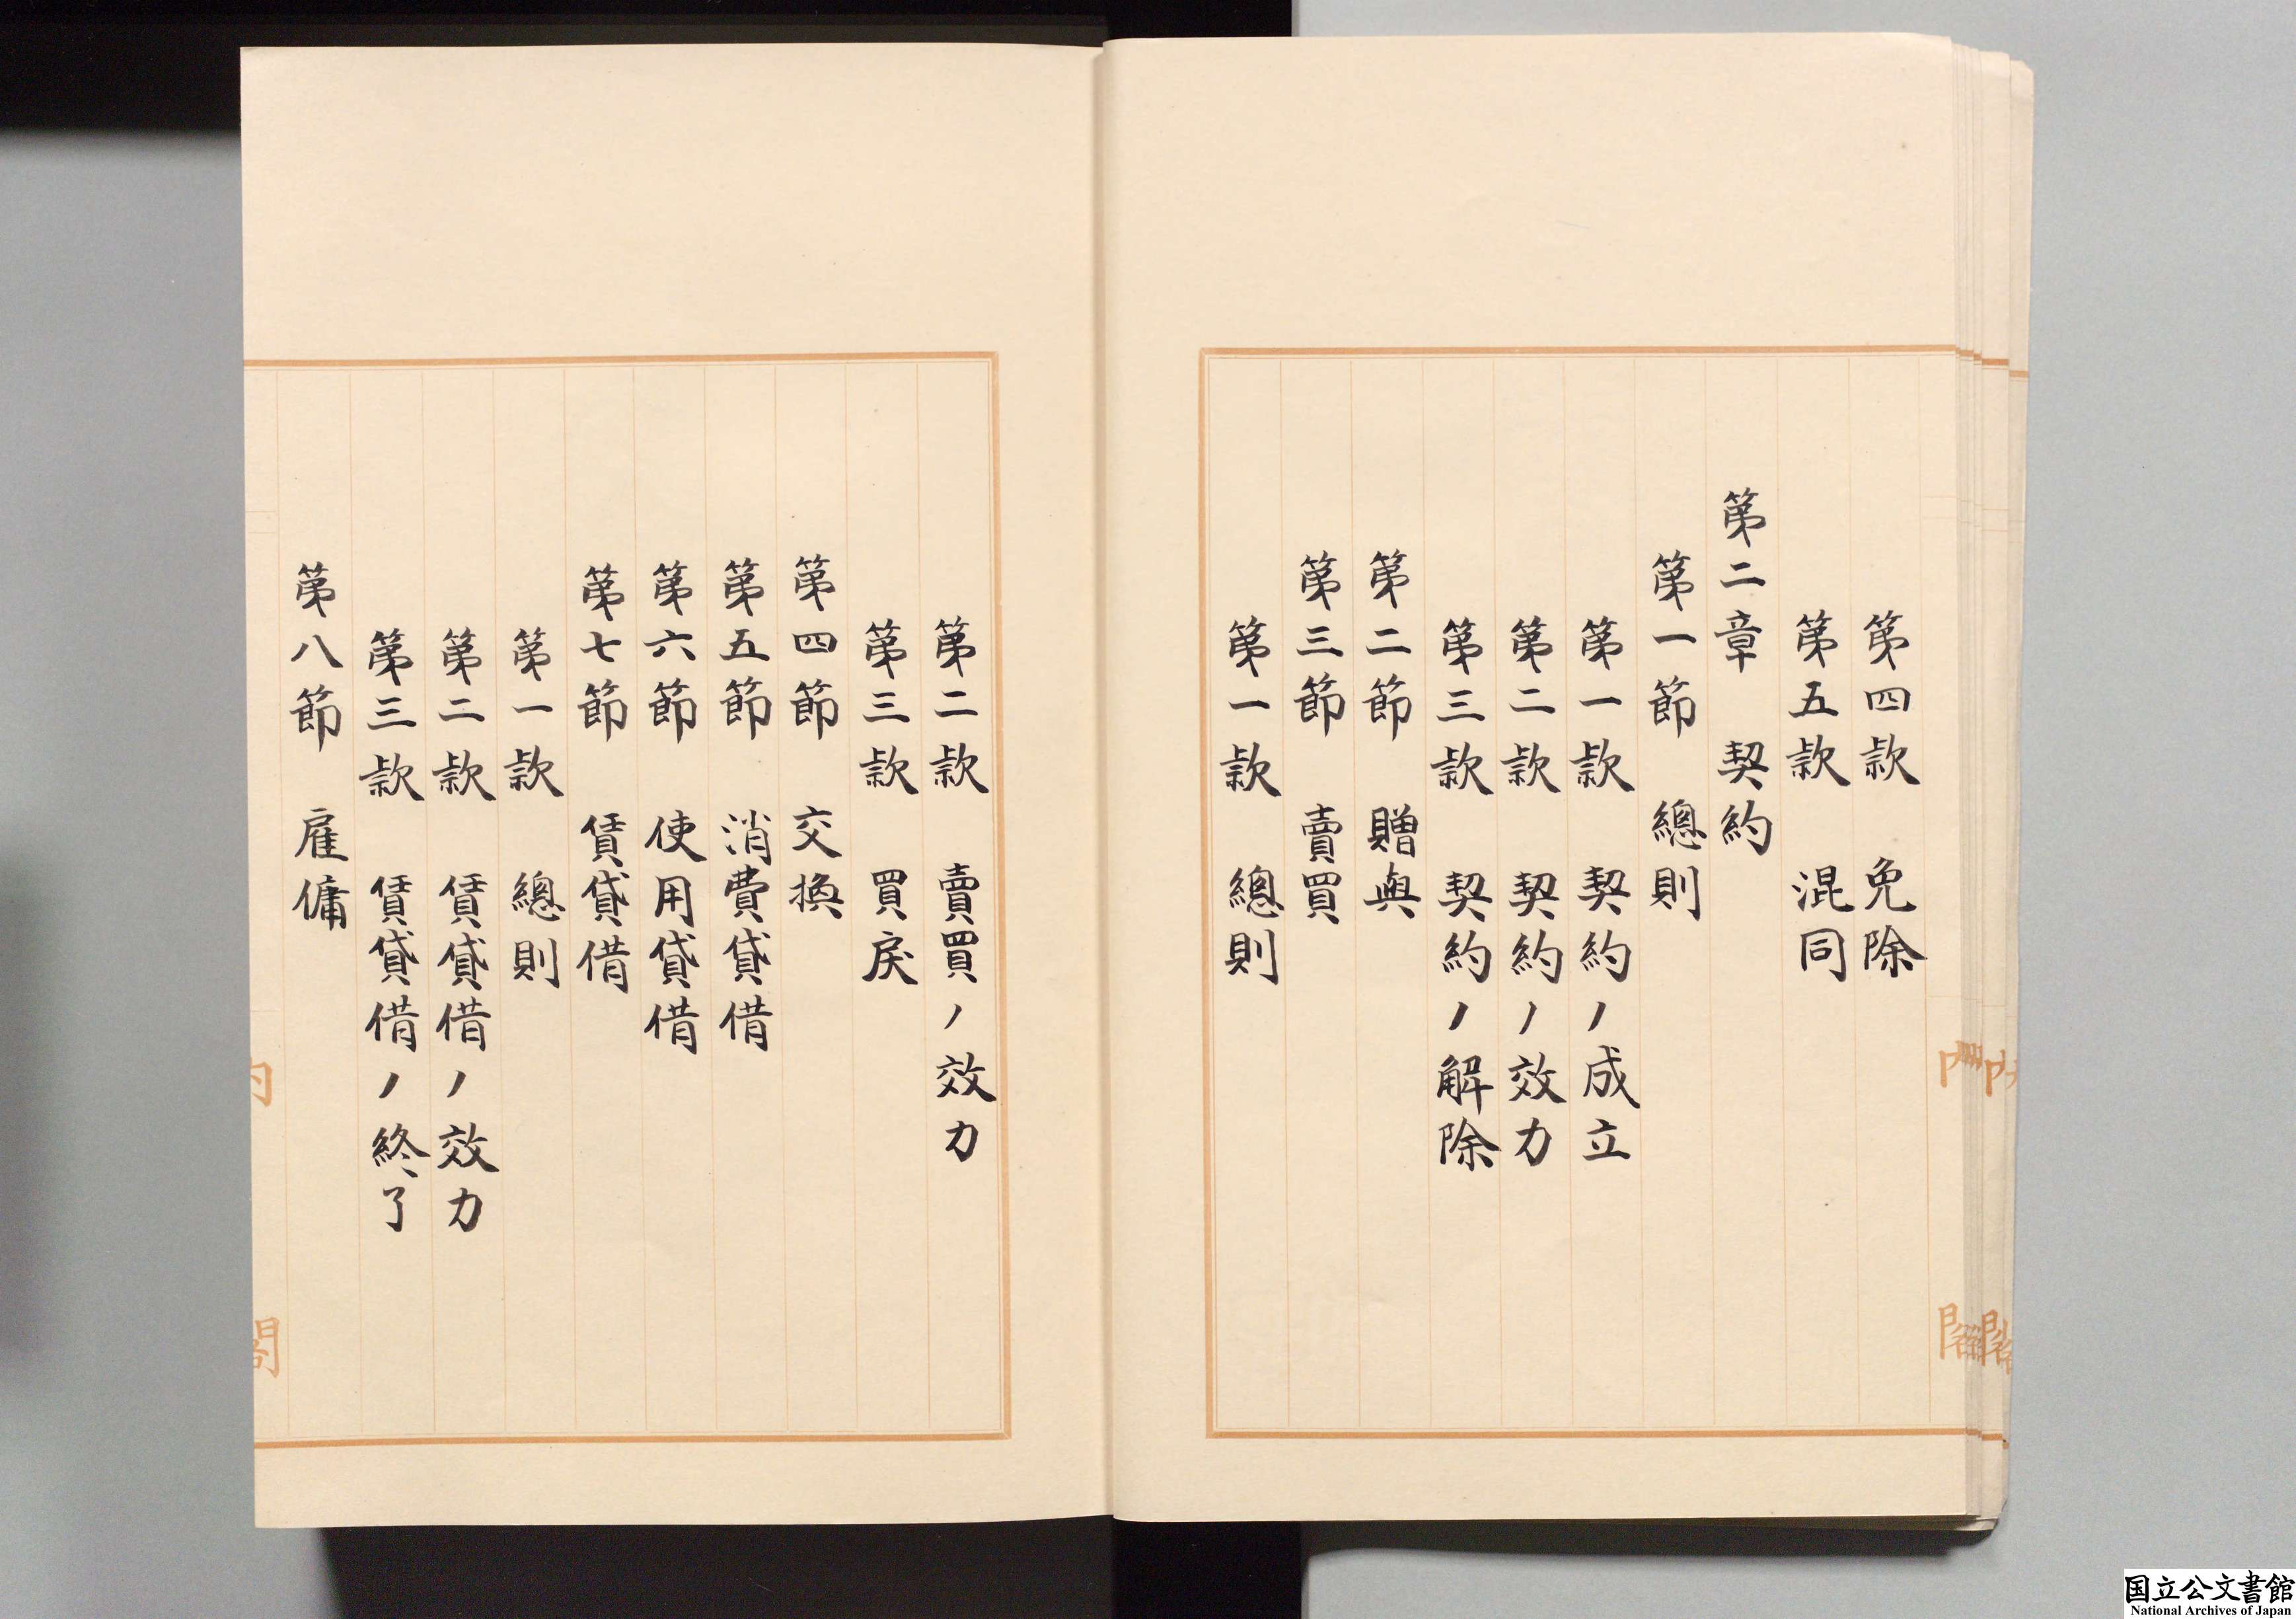 第四款　免除
第五款　混同
第二章　契約
第一節　總則
第一款　契約ノ成立
第二款　契約ノ效力
第三款　契約ノ解除
第二節　贈與
第三節　賣買
第一款　總則
第二款　賣買ノ效力
第三款　買戻
第四節　交換
第五節　消費貸借
第六節　使用貸借
第七節　賃貸借
第一款　總則
第二款　賃貸借ノ效力
第三款　賃貸借ノ終了
第八節　雇傭
内閣
国立公文書館
National Archives of Japan